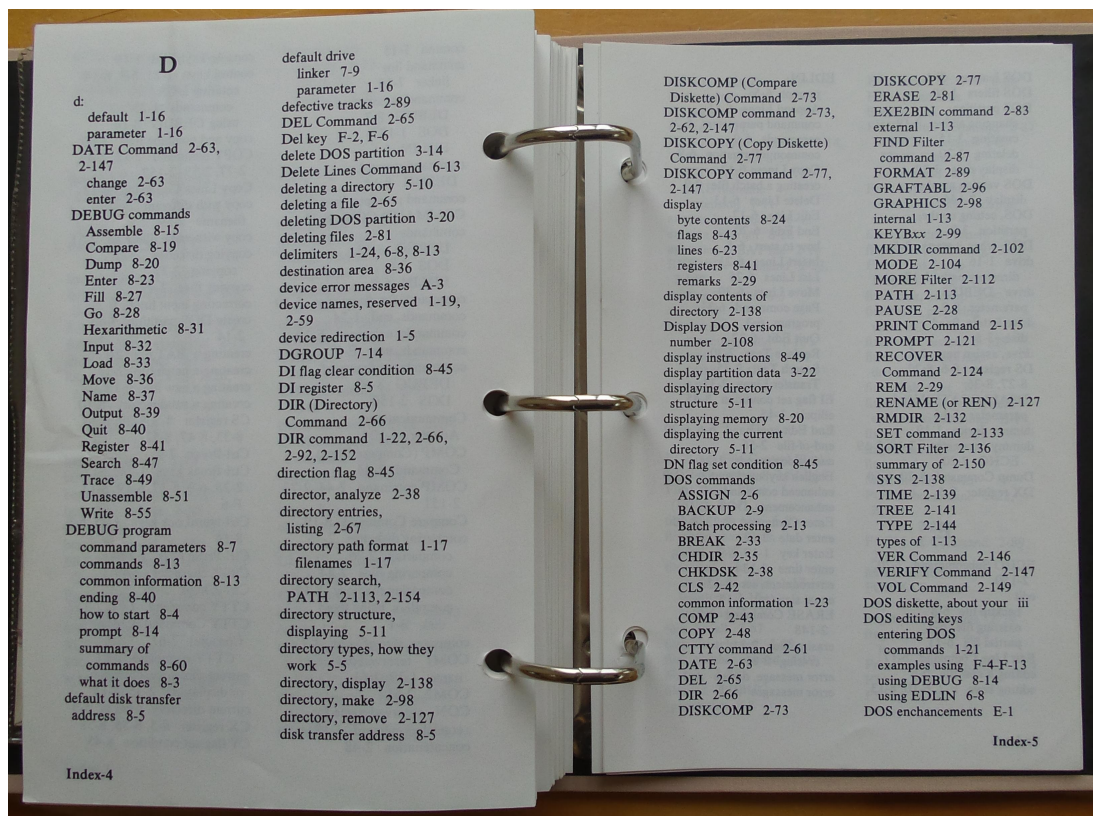 D
d:
default 1-16
parameter 1-16
DATE Command 2-63,
2-147
change 2-63
enter 2-63
DEBUG commands
Assemble 8-15
Compare 8-19
Dump 8-20
Enter 8-23
Fill 8-27
Go 8-28
Hexarithmetic 8-31
Input 8-32
Load 8-33
Move 8-36
Name 8-37
Output 8-39
Quit 8-40
Register 8-41
Search 8-47
Trace 8-49
Unassemble 8-51
Write 8-55
DEBUG program
command parameters 8-7
commands 8-13
common information 8-13
ending 8-40
how to start 8-4
prompt 8-14
summary of
commands 8-60
what it does 8-3
default disk transfer
address 8-5
default drive
linker 7-9
parameter 1-16
defective tracks 2-89
DEL Command 2-65
Del key F-2, F-6
delete DOS partition 3-14
Delete Lines Command 6-13
deleting a directory 5-10
deleting a file 2-65
deleting DOS partition 3-20
deleting files 2-81
delimiters 1-24, 6-8, 8-13
destination area 8-36
device error messages A-3
device names, reserved 1-19,
2-59
device redirection 1-5
DGROUP 7-14
DI flag clear condition 8-45
DI register 8-5
DIR (Directory)
Command 2-66
DIR command 1-22, 2-66,
2-92, 2-152
direction flag 8-45
director, analyze 2-38
directory entries,
listing 2-67
directory path format 1-17
filenames 1-17
directory search,
PATH 2-113, 2-154
directory structure,
displaying 5-11
directory types, how they
work 5-5
directory, display 2-138
directory, make 2-98
directory, remove 2-127
disk transfer address 8-5
Index-4
DISKCOMP (Compare
Diskette) Command 2-73
DISKCOMP command 2-73,
2-62, 2-147
DISKCOPY (Copy Diskette)
Command 2-77
DISKCOPY command 2-77,
2-147
display
byte contents 8-24
flags 8-43
lines 6-23
registers 8-41
remarks 2-29
display contents of
directory 2-138
Display DOS version
number 2-108
display instructions 8-49
display partition data 3-22
displaying directory
structure 5-11
displaying memory 8-20
displaying the current
directory 5-11
DN flag set condition 8-45
DOS commands
ASSIGN 2-6
BACKUP 2-9
Batch processing 2-13
BREAK 2-33
CHDIR 2-35
CHKDSK 2-38
CLS 2-42
common information 1-23
COMP 2-43
COPY 2-48
CTTY command 2-61
DATE 2-63
DEL 2-65
DIR 2-66
DISKCOMP 2-73
DISKCOPY 2-77
ERASE 2-81
EXE2BIN command 2-83
external 1-13
FIND Filter
command 2-87
FORMAT 2-89
GRAFTABL 2-96
GRAPHICS 2-98
internal 1-13
KEYBxx 2-99
MKDIR command 2-102
MODE 2-104
MORE Filter 2-112
PATH 2-113
PAUSE 2-28
PRINT Command 2-115
PROMPT 2-121
RECOVER
Command 2-124
REM 2-29
RENAME (or REN) 2-127
RMDIR 2-132
SET command 2-133
SORT Filter 2-136
summary of 2-150
SYS 2-138
TIME 2-139
TREE 2-141
TYPE 2-144
types of 1-13
VER Command 2-146
VERIFY Command 2-147
VOL Command 2-149
DOS diskette, about your iii
DOS editing keys
entering DOS
commands 1-21
examples using F-4-F-13
using DEBUG 8-14
using EDLIN 6-8
DOS enchancements E-1
Index-5